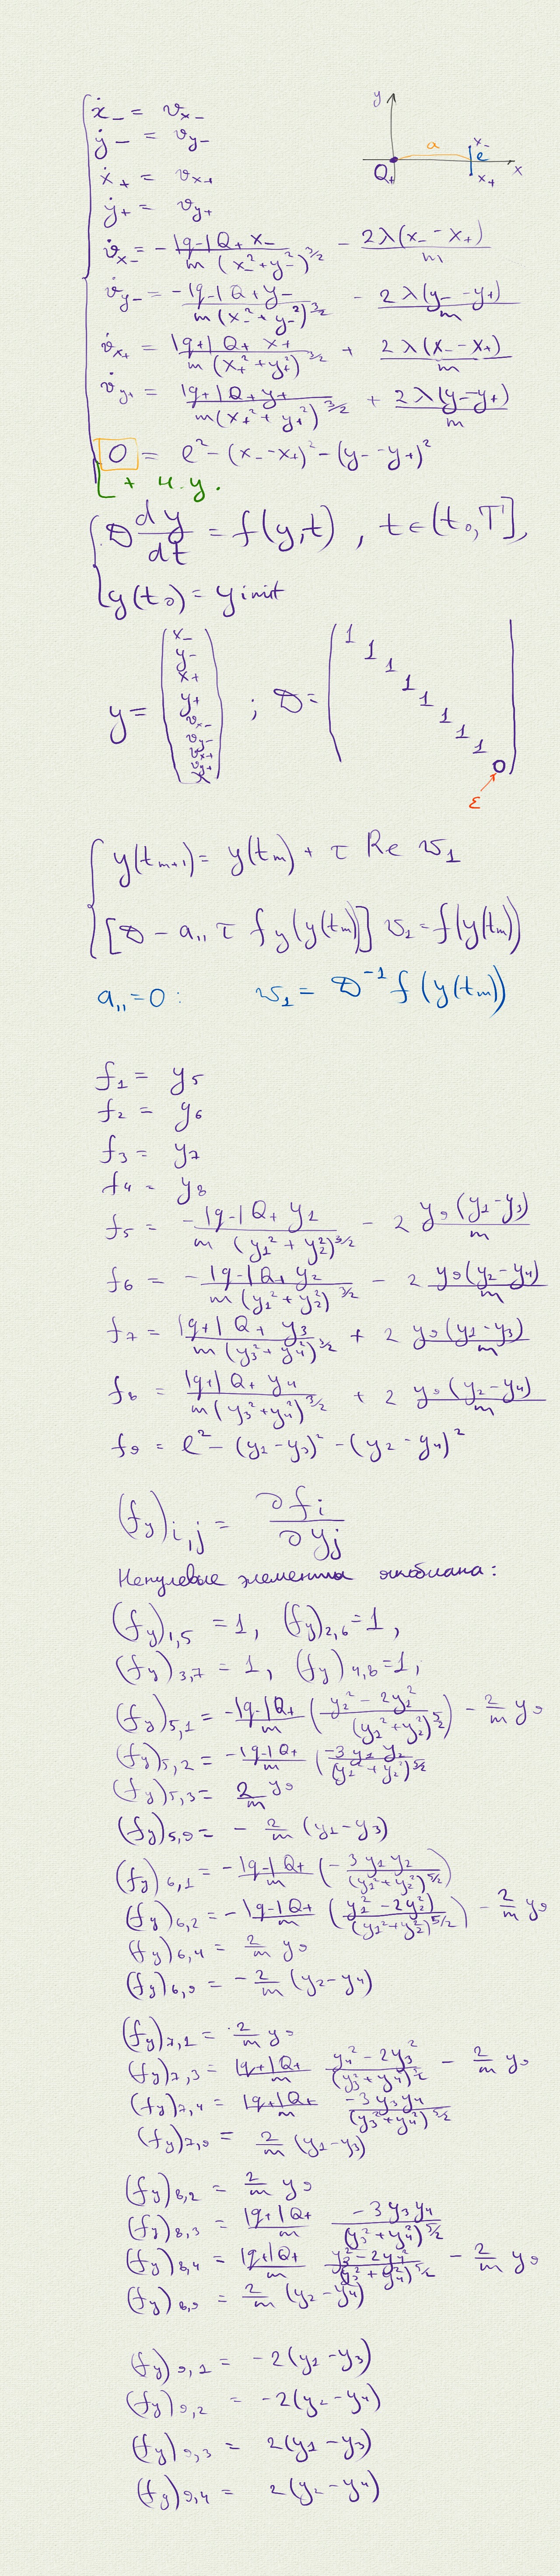 ẋ₋ = v_{x₋}
ẏ₋ = v_{y₋}
ẋ₊ = v_{x₊}
ẏ₊ = v_{y₊}
y
a
x₋
e
Q₊
x₊
x
v̇_{x₋} = - |q₋|Q₊ x₋ / m(x₋²+y₋²)^{3/2} - 2λ(x₋ - x₊) / m
v̇_{y₋} = - |q₋|Q₊ y₋ / m(x₋²+y₋²)^{3/2} - 2λ(y₋ - y₊) / m
v̇_{x₊} = |q₊|Q₊ x₊ / m(x₊²+y₊²)^{3/2} + 2λ(x₋ - x₊) / m
v̇_{y₊} = |q₊|Q₊ y₊ / m(x₊²+y₊²)^{3/2} + 2λ(y₋ - y₊) / m
0 = l² - (x₋ - x₊)² - (y₋ - y₊)²
+ н.у.
D dy/dt = f(y,t), t ∈ (t₀,T],
y(t₀) = y init
y = (x₋ y₋ x₊ y₊ v_{x₋} v_{y₋} v_{x₊}) ; D = (1 1 1 1 1 1 1 1 0)
ε
y(t_{m+1}) = y(t_m) + τ Re w₁
[D - a₁₁ τ f_y(y(t_m))] w₁ = f(y(t_m))
a₁₁ = 0 : w₁ = D⁻¹ f(y(t_m))
f₁ = y₅
f₂ = y₆
f₃ = y₇
f₄ = y₈
f₅ = - |q₋|Q₊ y₁ / m (y₁² + y₂²)^{3/2} - 2 y₉(y₁-y₃) / m
f₆ = - |q₋|Q₊ y₂ / m(y₁²+y₂²)^{3/2} - 2 y₉(y₂-y₄) / m
f₇ = |q₊|Q₊ y₃ / m(y₃²+y₄²)^{3/2} + 2 y₉(y₁-y₃) / m
f₈ = |q₊|Q₊ y₄ / m(y₃²+y₄²)^{3/2} + 2 y₉(y₂-y₄) / m
f₉ = l² - (y₁-y₃)² - (y₂-y₄)²
(f_y)_{i,j} = ∂f_i / ∂y_j
Ненулевые элементы якобиана:
(f_y)_{1,5} = 1, (f_y)_{2,6} = 1,
(f_y)_{3,7} = 1, (f_y)_{4,8} = 1,
(f_y)_{5,1} = -|q₋|Q₊ / m ( y₂² - 2y₁² / (y₁²+y₂²)^{5/2} ) - 2/m y₉
(f_y)_{5,2} = -|q₋|Q₊ / m ( -3y₁y₂ / (y₁²+y₂²)^{5/2}
(f_y)_{5,3} = 2/m y₉
(f_y)_{5,9} = - 2/m (y₁-y₃)
(f_y)_{6,1} = -|q₋|Q₊ / m ( - 3y₁y₂ / (y₁²+y₂²)^{5/2} )
(f_y)_{6,2} = -|q₋|Q₊ / m ( y₁² - 2y₂² / (y₁²+y₂²)^{5/2} ) - 2/m y₉
(f_y)_{6,4} = 2/m y₉
(f_y)_{6,9} = - 2/m (y₂-y₄)
(f_y)_{7,1} = 2/m y₉
(f_y)_{7,3} = |q₊|Q₊ / m y₄² - 2y₃² / (y₃²+y₄²)^{5/2} - 2/m y₉
(f_y)_{7,4} = |q₊|Q₊ / m -3y₃y₄ / (y₃²+y₄²)^{5/2}
(f_y)_{7,9} = 2/m (y₁-y₃)
(f_y)_{8,2} = 2/m y₉
(f_y)_{8,3} = |q₊|Q₊ / m -3y₃y₄ / (y₃²+y₄²)^{5/2}
(f_y)_{8,4} = |q₊|Q₊ / m y₃² - 2y₄² / (y₃²+y₄²)^{5/2} - 2/m y₉
(f_y)_{8,9} = 2/m (y₂-y₄)
(f_y)_{9,1} = -2(y₁-y₃)
(f_y)_{9,2} = -2(y₂-y₄)
(f_y)_{9,3} = 2(y₁-y₃)
(f_y)_{9,4} = 2(y₂-y₄)